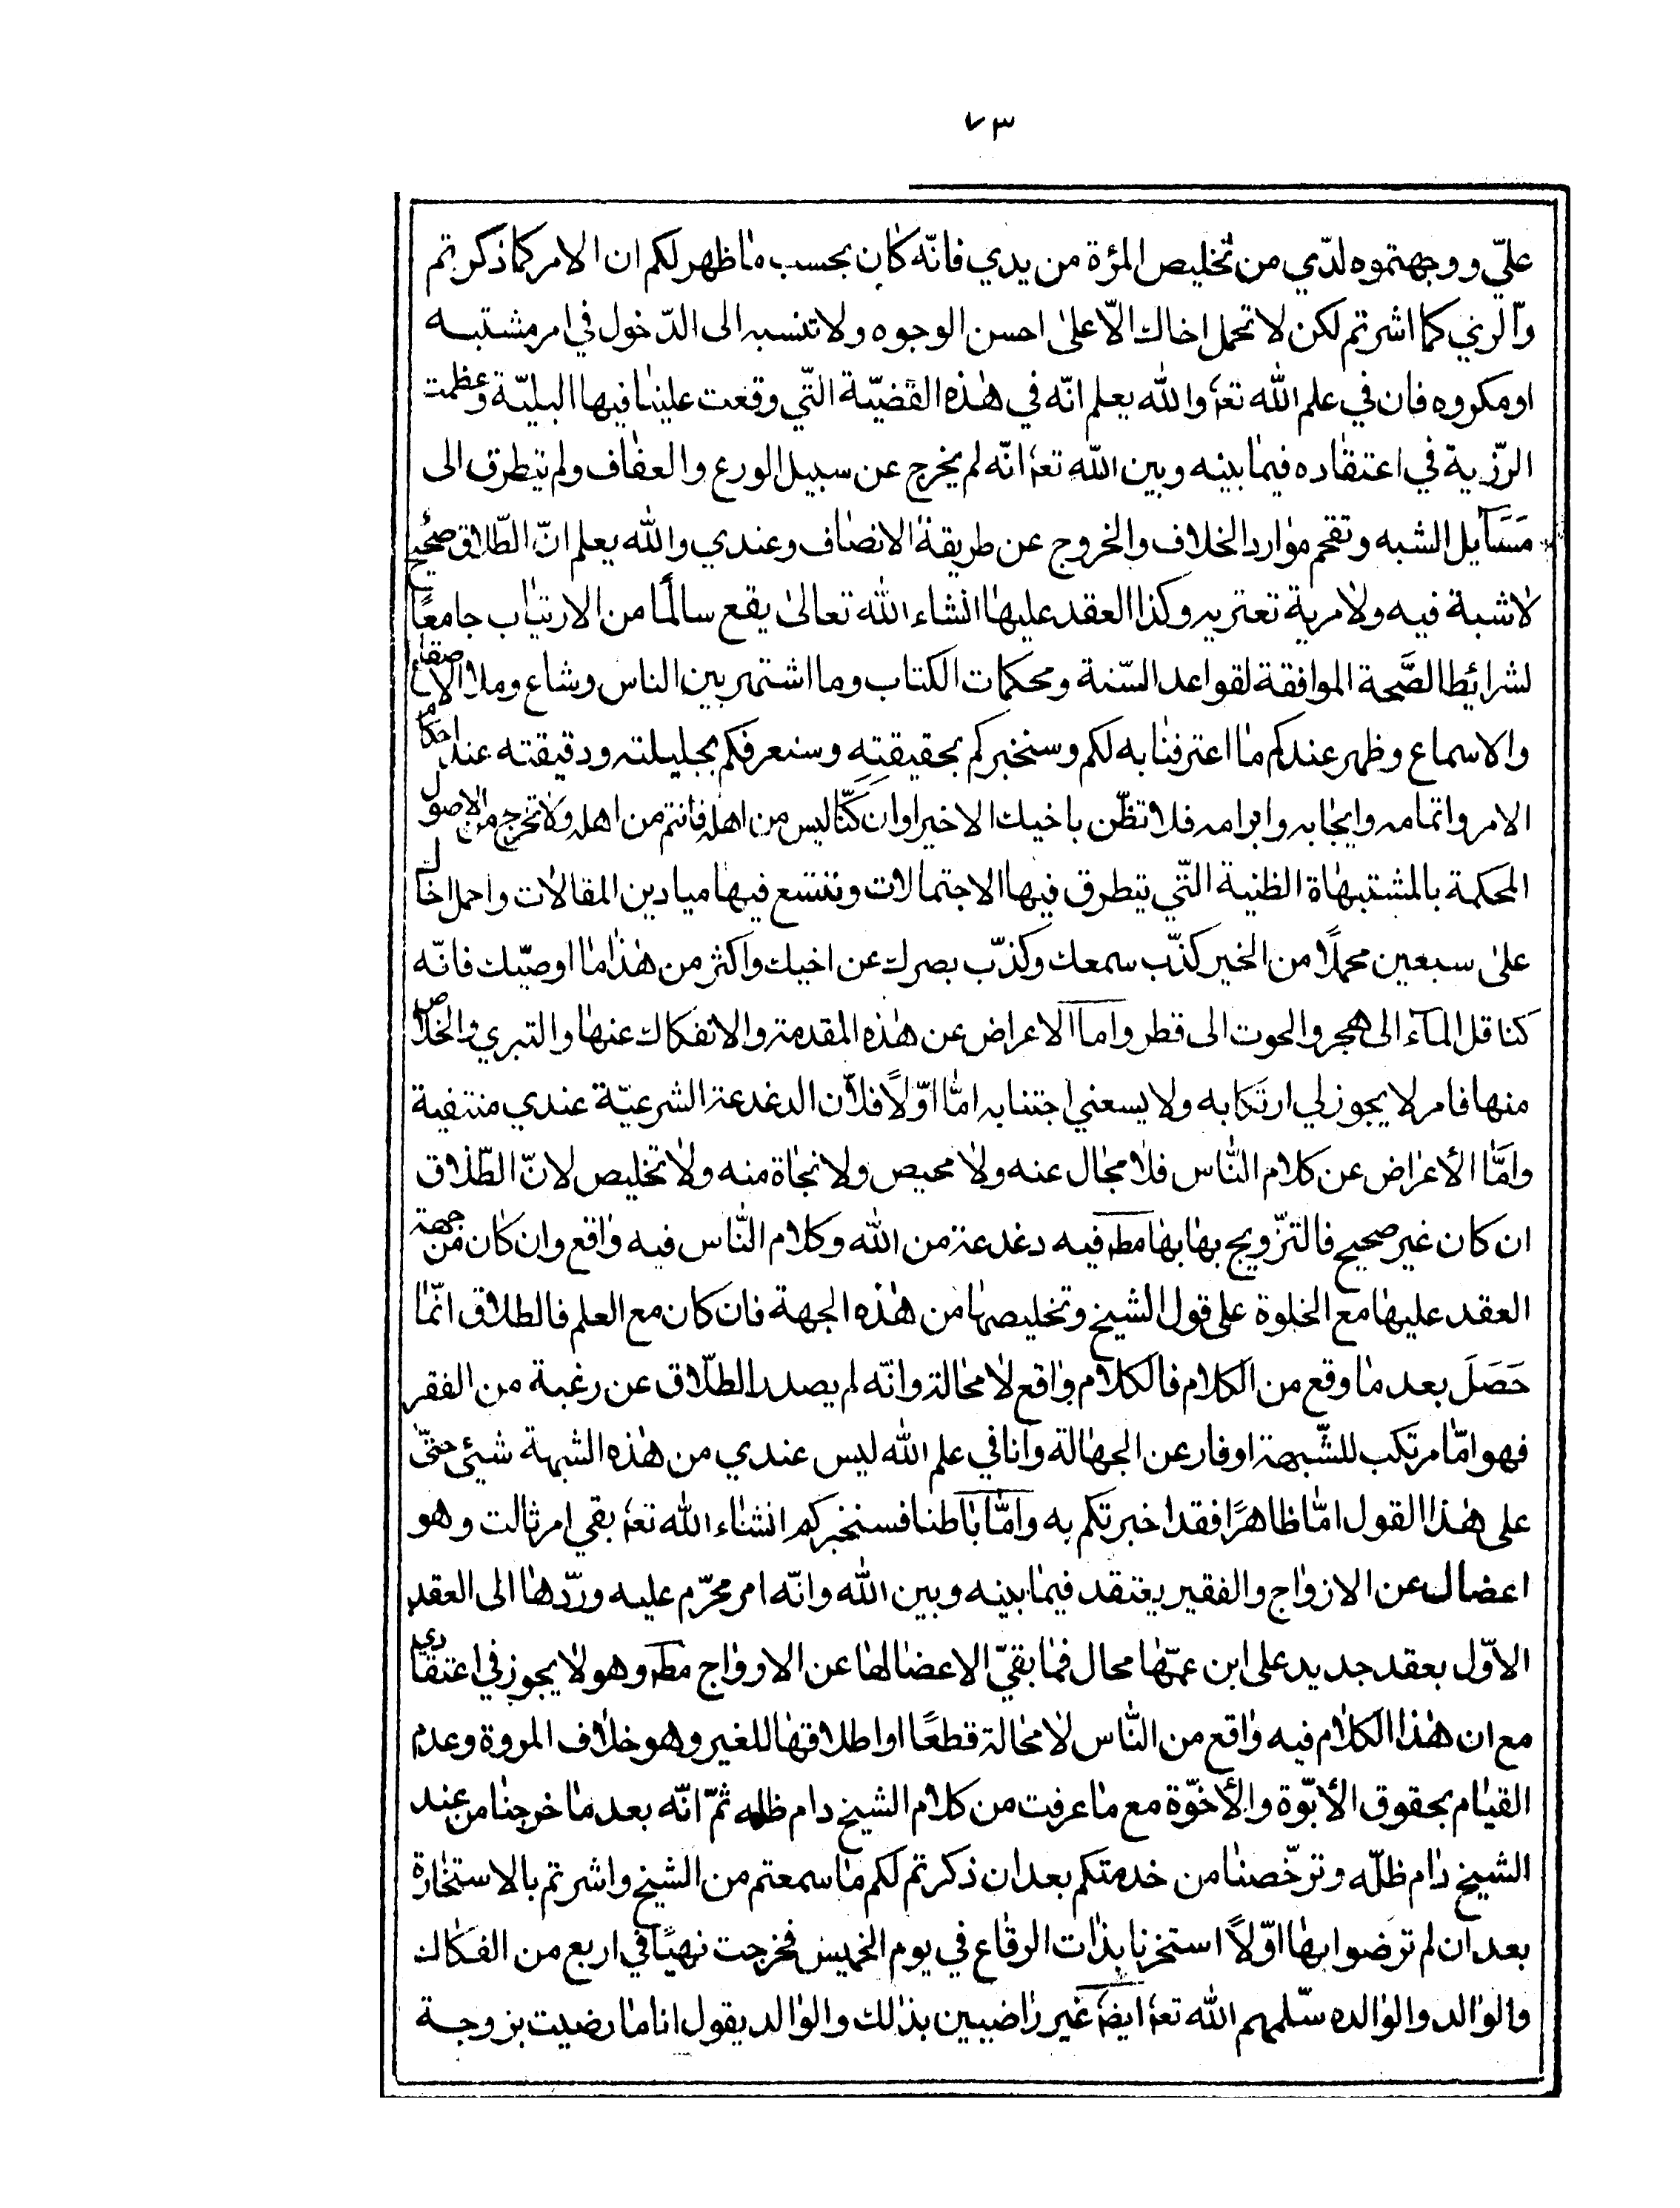 ٧٣
عليّ ووجهتموه لدّي من تخليص المرٔة من يدي فانّه كان بحسب ما ظهر لكم ان الامر كما ذكرتم
والرني كما اشرتم لكن لا تحمل اخاك الّا علىٰ احسن الوجوه ولا تنسبه الى الدّخول في امر مشتبه
او مكروه فان في علم اللّٰه تعهٰ واللّٰه يعلم انّه في هٰذه القضيّة التّي وقعت علينا فيها البليّة وعظمت
الرّزية في اعتقاده فيما بينه وبين اللّٰه تعهٰ انّه لم يخرج عن سبيل الورع والعفاف ولم يتطرق الى
مَسَآيل الشبه وتقحم موارد الخلاف والخروج عن طريقة الانصاف وعندي واللّٰه يعلم انّ الطّلاق صحيح
لا شبهة فيه ولا مرية تعتريه وكذا العقد عليها انشاء اللّٰه تعالىٰ يقع سالمًا من الارتياب جامعًا
لشرائط الصَّحة الموافقة لقواعد السّنة ومحكمات الكتاب وما اشتهر بين الناس وشاع وملا الاصقاع
والاسماع وظهر عندكم ما اعترفنا به لكم وسنخبركم بحقيقتِهِ وسنعرفكم بجليلته ودقيقته عند احكام
الامر واتمامه وايجابه وابرامه فلا تظّن باخيك الا خيرا وان كنّا ليس من اهله فانتم من اهله ولا تخرج من الاصول
المحكمة بالمشتبهاة الظنية التّي يتطرق فيها الاحتمالات وتتسع فيها ميادين المقالات واحمل اخاك
علىٰ سبعين محملًا من الخير كذّب سمعك وكذّب بصرك عن اخيك واكثر من هٰذا ما اوصّيك فانّه
كناقل المآء الى هجر والحوت الى قطر واما الاعراض عن هٰذه المقدمة والانفكاك عنها والتبري والخلاص
منها فامر لا يجوز لي ارتكابه ولا يسعني اجتنابه امّا اوّلًا فلاّن الدغدغة الشرعيّة عندي منتفية
وامّا الأعراض عن كلام النّاس فلا مجال عنه ولا محيص ولا نجاة منه ولا تخليص لانّ الطّلاق
ان كان غير صحيح فالتزّويج بها بها مطهٰ فيه دغدغة من اللّٰه وكلام النّاس فيه واقع وان كان من جهة
العقد عليها مع الخلوة على قول الشيخ وتخليصها من هٰذه الجهة فان كان مع العلم فالطلاق انّما
حَصَلَ بعد ما وقع من الكلام فالكلام واقع لا محالة وانّه لم يصدر الطلّاق عن رغبة من الفقر
فهو امّا مرتكب للشّبهة او فار عن الجهالة وانا في علم اللّٰه ليس عندي من هٰذه الشبهة شيئ حتّى
على هٰذا القول امّا ظاهرًا فقد اخبرتكم به وامّا باطنا فسنخبركم انشاء اللّٰه تعهٰ بقي امر ثالث وهو
اعضال عن الازواج والفقير يعتقد فيما بينه وبين اللّٰه وانّه امر محرّم عليه وردّها الى العقد
الاوّل بعقد جديد على ابن عمّها محال فما بقيّ الا عضالها عن الازواج مطهٰ وهو لا يجوز في اعتقادي
مع ان هٰذا الكلام فيه واقع من النّاس لا محالة قطعًا او اطلاقها للغير وهو خلاف المروة وعدم
القيام بحقوق الأبوّة والأخوّة مع ما عرفت من كلام الشيخ دام ظله ثمّ انّه بعد ما خرجنا من عند
الشيخ دام ظلّه وترخّصنا من خدمتكم بعد ان ذكرتم لكم ما سمعتم من الشيخ واشرتم بالاستخارة
بعد ان لم ترضوا بها اوّلًا استخرنا بذات الرقاع في يوم الخميس فخرجت نهيًا في اربع من الفكاك
والوالد والوالده سّلمهم اللّٰه تعهٰ ايضهٰ غير راضيين بذلك والوالد يقول انا ما رضيت بزوجة